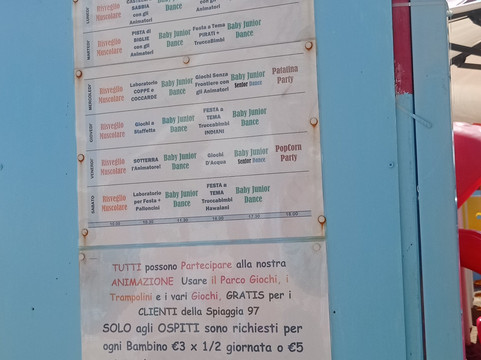 LUNEDI'
Risveglio
Muscolare
SABBIA
con gli
Animatori
Baby Junior
Dance
con gli
Animatori
Baby Junior
Dance
MARTEDI'
Risveglio
Muscolare
PISTA di
BIGLIE
con gli
Animatori
Baby Junior
Dance
Festa a Tema
PIRATI +
TruccaBimbi
Baby Junior
Dance
MERCOLEDI'
Risveglio
Muscolare
Laboratorio
COPPE e
COCCARDE
Baby Junior
Dance
Giochi Senza
Frontiere con
gli Animatori
Baby Junior
Senior Dance
Patatina
Party
GIOVEDI'
Risveglio
Muscolare
Giochi a
Staffetta
Baby Junior
Dance
FESTA a
TEMA
Truccabimbi
INDIANI
Baby Junior
Dance
VENERDI'
Risveglio
Muscolare
SOTTERRA
l'Animatore!
Baby Junior
Dance
Giochi
D'Acqua
Baby Junior
Senior Dance
PopCorn
Party
SABATO
Risveglio
Muscolare
Laboratorio
per Festa +
Palloncini
Baby Junior
Dance
FESTA a
TEMA
Truccabimbi
Hawaiani
Baby Junior
Dance
10.00 11.30 17.30 18.00
TUTTI possono Partecipare alla nostra
ANIMAZIONE Usare il Parco Giochi, i
Trampolini e i vari Giochi, GRATIS per i
CLIENTI della Spiaggia 97
SOLO agli OSPITI sono richiesti per
ogni Bambino €3 x 1/2 giornata o €5